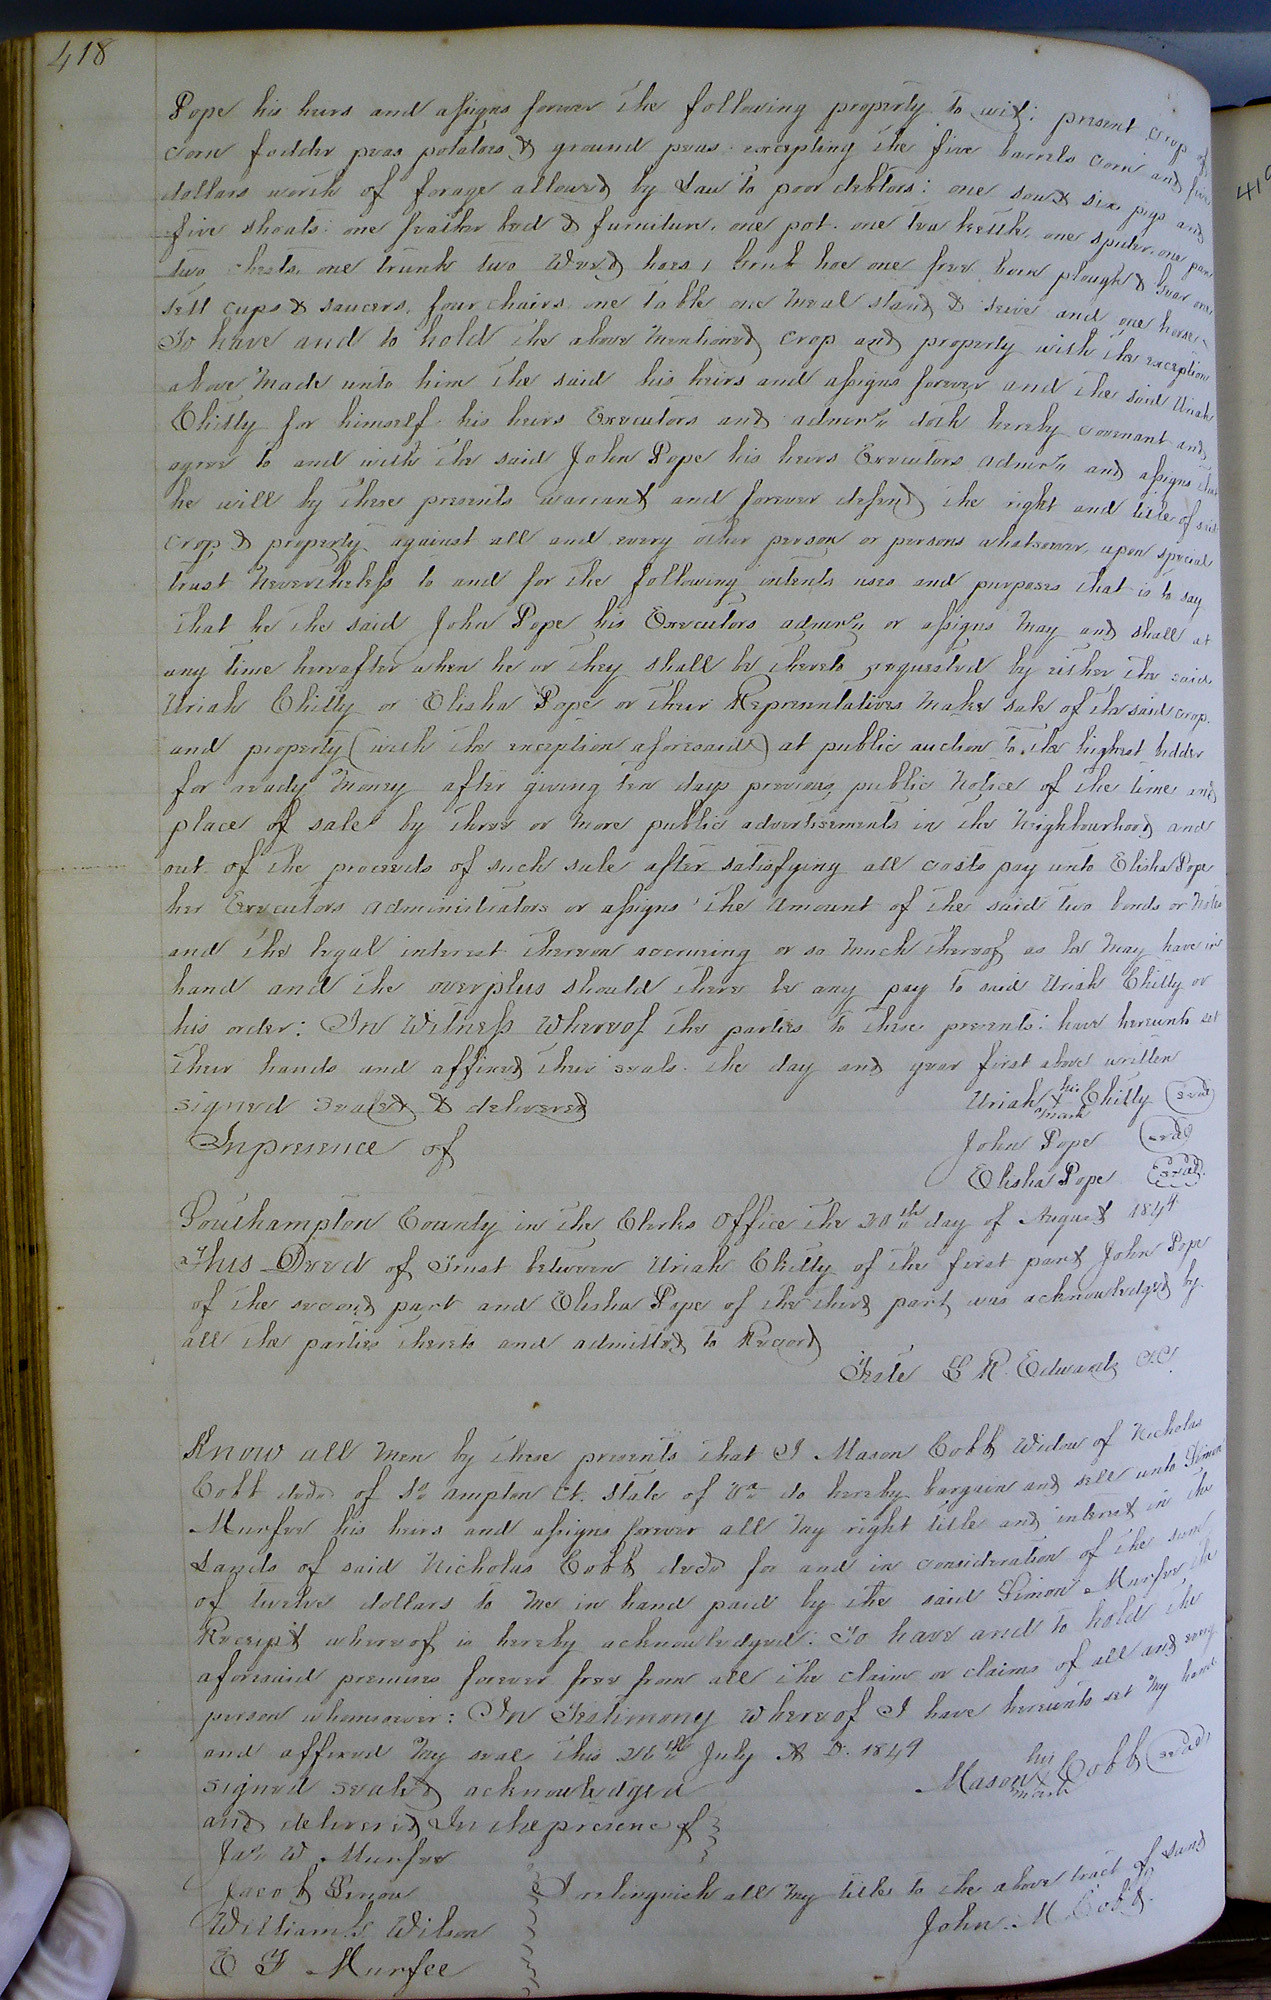 418
Pope his heirs and assigns forever the following property to wit: present crop of
corn fodder peas potatoes & ground peas excepting the five barrels corn and five
dollars worth of forage allowed by Law to poor debtors: one sow & six pigs and
five shoats: one feather bed & furniture, one pot. one tea kettle, one spider, one pan
two chests, one trunk two Weed hoes 1 Grub hoe one free born plough & Gear one
sett cups & saucers, four chairs one table one Meal stand & seive and one horse,
To have and to hold the above Mentioned crop and property with the exception
above Made unto him the said his heirs and assigns forever and the said Uriah
Chitty for himself his heirs Executors and admors doth hereby covenant and
agree to and with the said John Pope his heirs Executors admors and assigns that
he will by these presents warrant and forever defend the right and title of said
crop & property against all and every other person or persons whatsoever, upon special
trust Nevertheless to and for the following intents uses and purposes that is to say
that he the said John Pope his Executors admors or assigns May and shall at
any time hereafter when he or they shall be thereto requested by either the said
Uriah Chitty or Elisha Pope or their Representatives Make sale of the said crop
and property (with the exception aforesaid) at public auction to the highest bidder
for ready Money after giving ten days previous public Notice of the time and
place of sale by three or More public advertisements in the Neighbourhood and
out of the proceeds of such sale after satisfying all costs pay unto Elisha Pope
her Executors administrators or assigns the Amount of the said two bonds or Notes
and the legal interest thereon accrueing or so Much thereof as he May have in
hand and the overplus should there be any pay to said Uriah Chitty or
his order: In Witness Whereof the parties to these presents: have hereunto set
their hands and affixed their seals the day and year first above written
signed sealed & delivered
Uriah his X mark Chitty (seal)
In presence of
John Pope (seal)
Elisha Pope (seal)
Southampton County in the Clerks Office the 20th day of August 1849
This Deed of Trust between Uriah Chitty of the first part John Pope
of the second part and Elisha Pope of the third part was acknowledged by
all the parties thereto and admitted to Record
Teste L R. Edwards C.C.
Know all Men by these presents that I Mason Cobb Widow of Nicholas
Cobb decd of So ampton Ct. State of Va do hereby bargain and sell unto Simon
Murfee his heirs and assigns forever all My right title and interest in the
Lands of said Nicholas Cobb decd for and in consideration of the sum
of twelve dollars to Me in hand paid by the said Simon Murfee the
Receipt whereof is hereby acknowledged: To have and to hold the
aforesaid premises forever free from all the claim or claims of all and every
person whomsoever: In Testimony Whereof I have hereunto set My hand
and affixed My seal this 26th July A D. 1849
signed sealed acknowledged
Mason her X mark Cobb (seal)
and delivered In the presence of
Jas W. Murfee
Jacob
I relinquish all My title to the above tract of Land
William Wilson
John. M Cobb.
E F Murfee